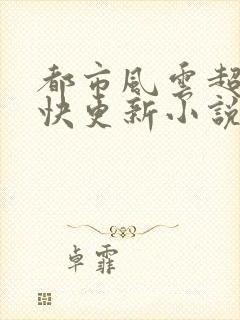 都市風雲超
快更新小說
卓霏